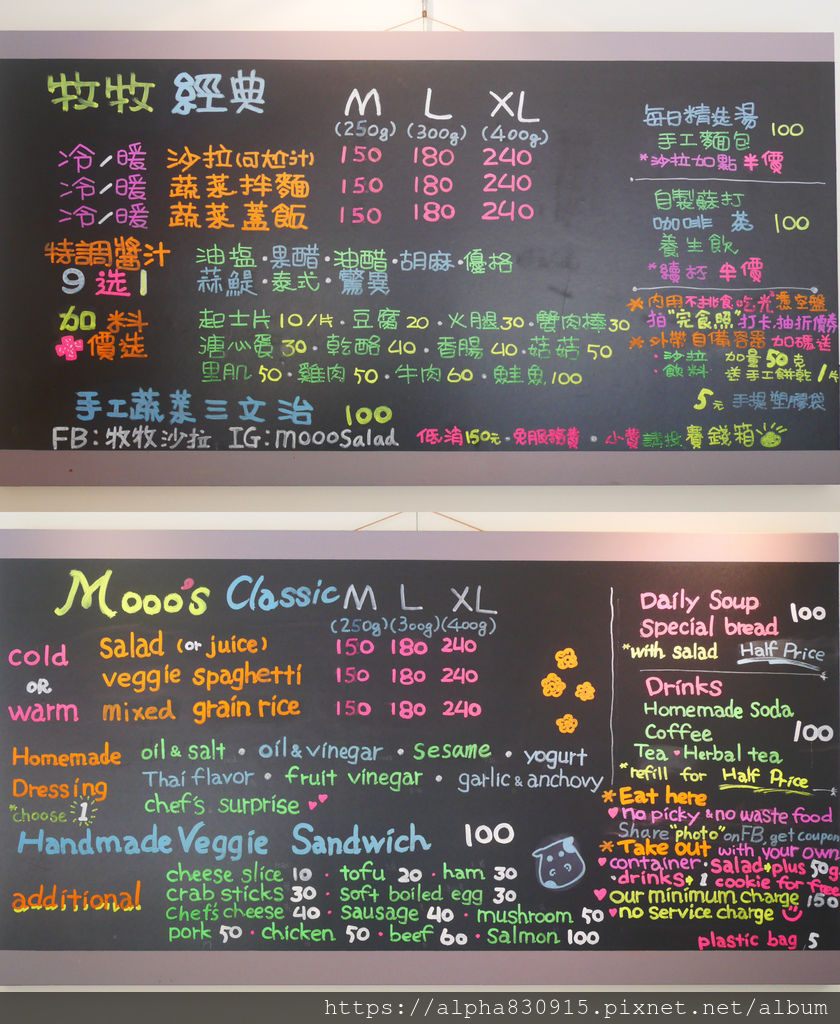 牧牧 經典 M L XL
(250g) (300g) (400g)
冷/暖 沙拉(可尬汁) 150 180 240
冷/暖 蔬菜拌麵 150 180 240
冷/暖 蔬菜蓋飯 150 180 240
特調醬汁 油塩·果醋·油醋·胡麻·優格
9選1 蒜鯷·泰式·驚異
加料 起士片10/片·豆腐20·火腿30·蟹肉棒30
價選 溏心蛋30·乾酪40·香腸40·菇菇50
里肌50·雞肉50·牛肉60·鮭魚100
手工蔬菜三文治 100
FB:牧牧沙拉 IG:moooSalad 低消150元·免服務費·小費請投賽錢箱
每日精选湯
手工麵包 100
*沙拉加點半價
自製蘇打
咖啡 茶 100
養生飲
*續杯 半價
*內用不挑食吃光憑空盤
拍"完食照"打卡,抽折價券
*外帶自備容器加碼送
·沙拉 加量50克
·飲料 送手工餅乾1片
5元 手提塑膠袋
Mooo's Classic M L XL
(250g)(300g)(400g)
cold OR warm
salad (or juice) 150 180 240
veggie spaghetti 150 180 240
mixed grain rice 150 180 240
Homemade Dressing
*choose 1
oil & salt · oil & vinegar · sesame · yogurt
Thai flavor · fruit vinegar · garlic & anchovy
chef's surprise
Handmade Veggie Sandwich 100
additional
cheese slice 10 · tofu 20 · ham 30
crab sticks 30 · soft boiled egg 30
Chef's cheese 40 · Sausage 40 · mushroom 50
pork 50 · chicken 50 · beef 60 · Salmon 100
Daily Soup
Special bread 100
*with salad Half Price
Drinks
Homemade Soda
Coffee 100
Tea · Herbal tea
*refill for Half Price
*Eat here
no picky & no waste food
Share "photo" on FB, get coupon
*Take out with your own
container · Salad→plus 50g
·drinks→1 cookie for free
our minimum charge 150
no service charge
plastic bag 5
https://alpha830915.pixnet.net/album